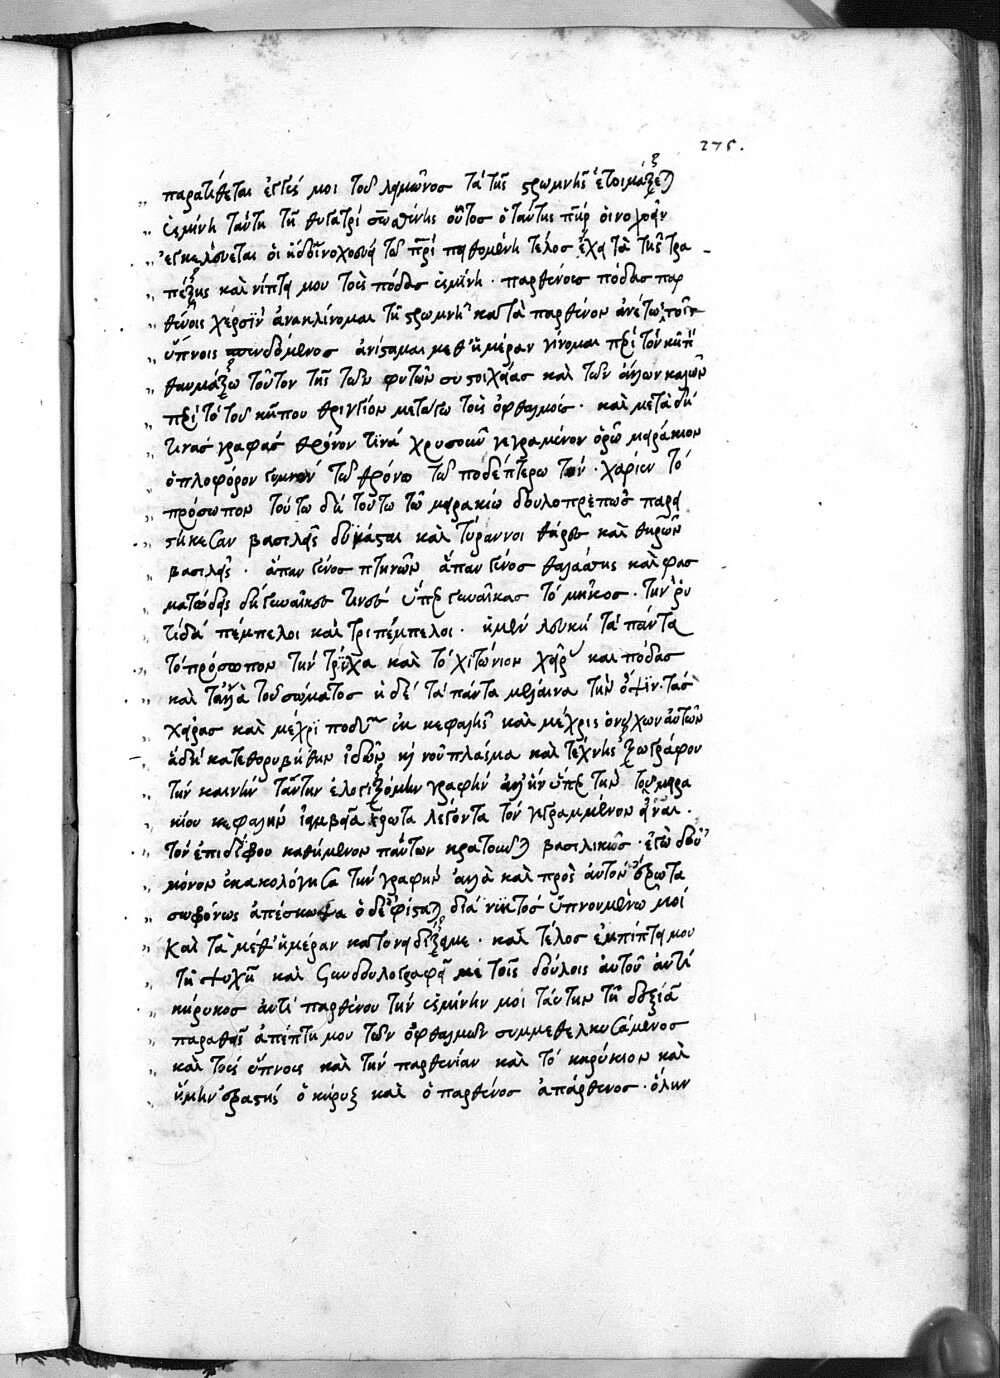 275.
παρατίθεται ἐγγύς μοι τοῦ λειμῶνος τὰ τῆς στρωμνῆς ἑτοιμάζεται
ὑσμίνη ταύτη τῇ θυγατρί σωσθένης οὗτος ὁ ταύτης πὴρ οἰνοχοεῖν
ἐγκελεύεται οἱ ἡ δ' οἰνοχοεῖ τῷ πρί πειθομένη τέλος ἔχει τὰ τῆς τρα
πέζης καὶ νίπτει μου τοὺς πόδας ὑσμίνη · παρθένος πόδας παρ
θένοις χερσὶν ἀνακλίνομαι τῇ στρωμνῇ κατὰ παρθένον
ὕπνοις ἀνίσταμαι μεθ' ἡμέραν γίνομαι πρὶ τὸν κῆπ
θαυμάζω τοῦτον τῆς τῶν φυτῶν συστοιχίας καὶ τῶν ἄλλων καλῶν
πρὶ τὸ τοῦ κήπου θριγγίον μετάγω τοὺς ὀφθαλμούς · καὶ μετὰ δή
τινας γραφάς θρόνον τινά χρυσοῦν γεγραμμένον ὁρῶ μειράκιον
ὁπλοφόρον γυμνόν τῷ θρόνῳ τὼ πόδε πτερωτόν · χαρίεν τό
πρόσωπον τούτῳ δή τούτῳ τῷ μειρακίῳ δουλοπρεπῶς παρει
στήκεσαν βασιλεῖς δυνάσται καὶ τύραννοι θάρσος καὶ θηρῶν
βασιλεῖς · ἅπαν γένος πτηνῶν ἅπαν γένος θαλάσσης καὶ φασ
ματώδεις δή γυναῖκες τινές ὑπὲρ γυναῖκας τὸ μῆκος · τὴν ῥυ
τίδα πέμπελοι καὶ τριπέμπελοι · ἡ μὲν λευκή τὰ πάντα
τὸ πρόσωπον τὴν τρίχα καὶ τὸ χιτώνιον χεῖρ καὶ πόδας
καὶ τἄλλα τοῦ σώματος ἡ δέ τὰ πάντα μέλαινα τὴν ὄψιν · τὰς
χεῖρας καὶ μέχρι ποδῶν ἐκ κεφαλῆς καὶ μέχρις ὀνύχων αὐτῶν
ἅ δή κατεθορυβήθην ἰδὼν νοῦ πλάσμα καὶ τέχνης ζωγράφου
τὴν καινὴν ταύτην ἐλογιζόμην γραφὴν ἀλλ' ἦν ὑπὲρ τὴν τοῦ μειρα
κίου κεφαλὴν ἰαμβεῖα ἔρωτα λέγοντα τὸν γεγραμμένον εἶναι ·
τὸν ἐπὶ δίφρου καθήμενον πάντων κρατοῦντα βασιλικῶς · ἐγὼ δ' οὐ
μόνον ἐκακολόγησα τὴν γραφὴν ἀλλὰ καὶ πρὸς αὐτὸν ἔρωτα
ἀπέσκωψα ὁ δ' ἐφίσταται διά νυκτός ὑπνουμένῳ μοί
καὶ τὰ μεθ' ἡμέραν κατονειδίζει με · καὶ τέλος ἐμπίπτει μου
τῇ ψυχῇ καὶ συνδουλογραφεῖ με τοῖς δούλοις αὐτοῦ ἀντί
κήρυκος ἀντί παρθένου τὴν ὑσμίνην μοι ταύτην τῇ δεξιᾷ
παραθεὶς ἀπέπτη μου τῶν ὀφθαλμῶν συμμεθελκυσάμενος
καὶ τοὺς ὕπνους καὶ τὴν παρθενίαν καὶ τὸ καρύκιον καὶ
ἤμην ἐραστής ὁ κήρυξ καὶ ὁ παρθένος ἀπάρθενος · ὅλην